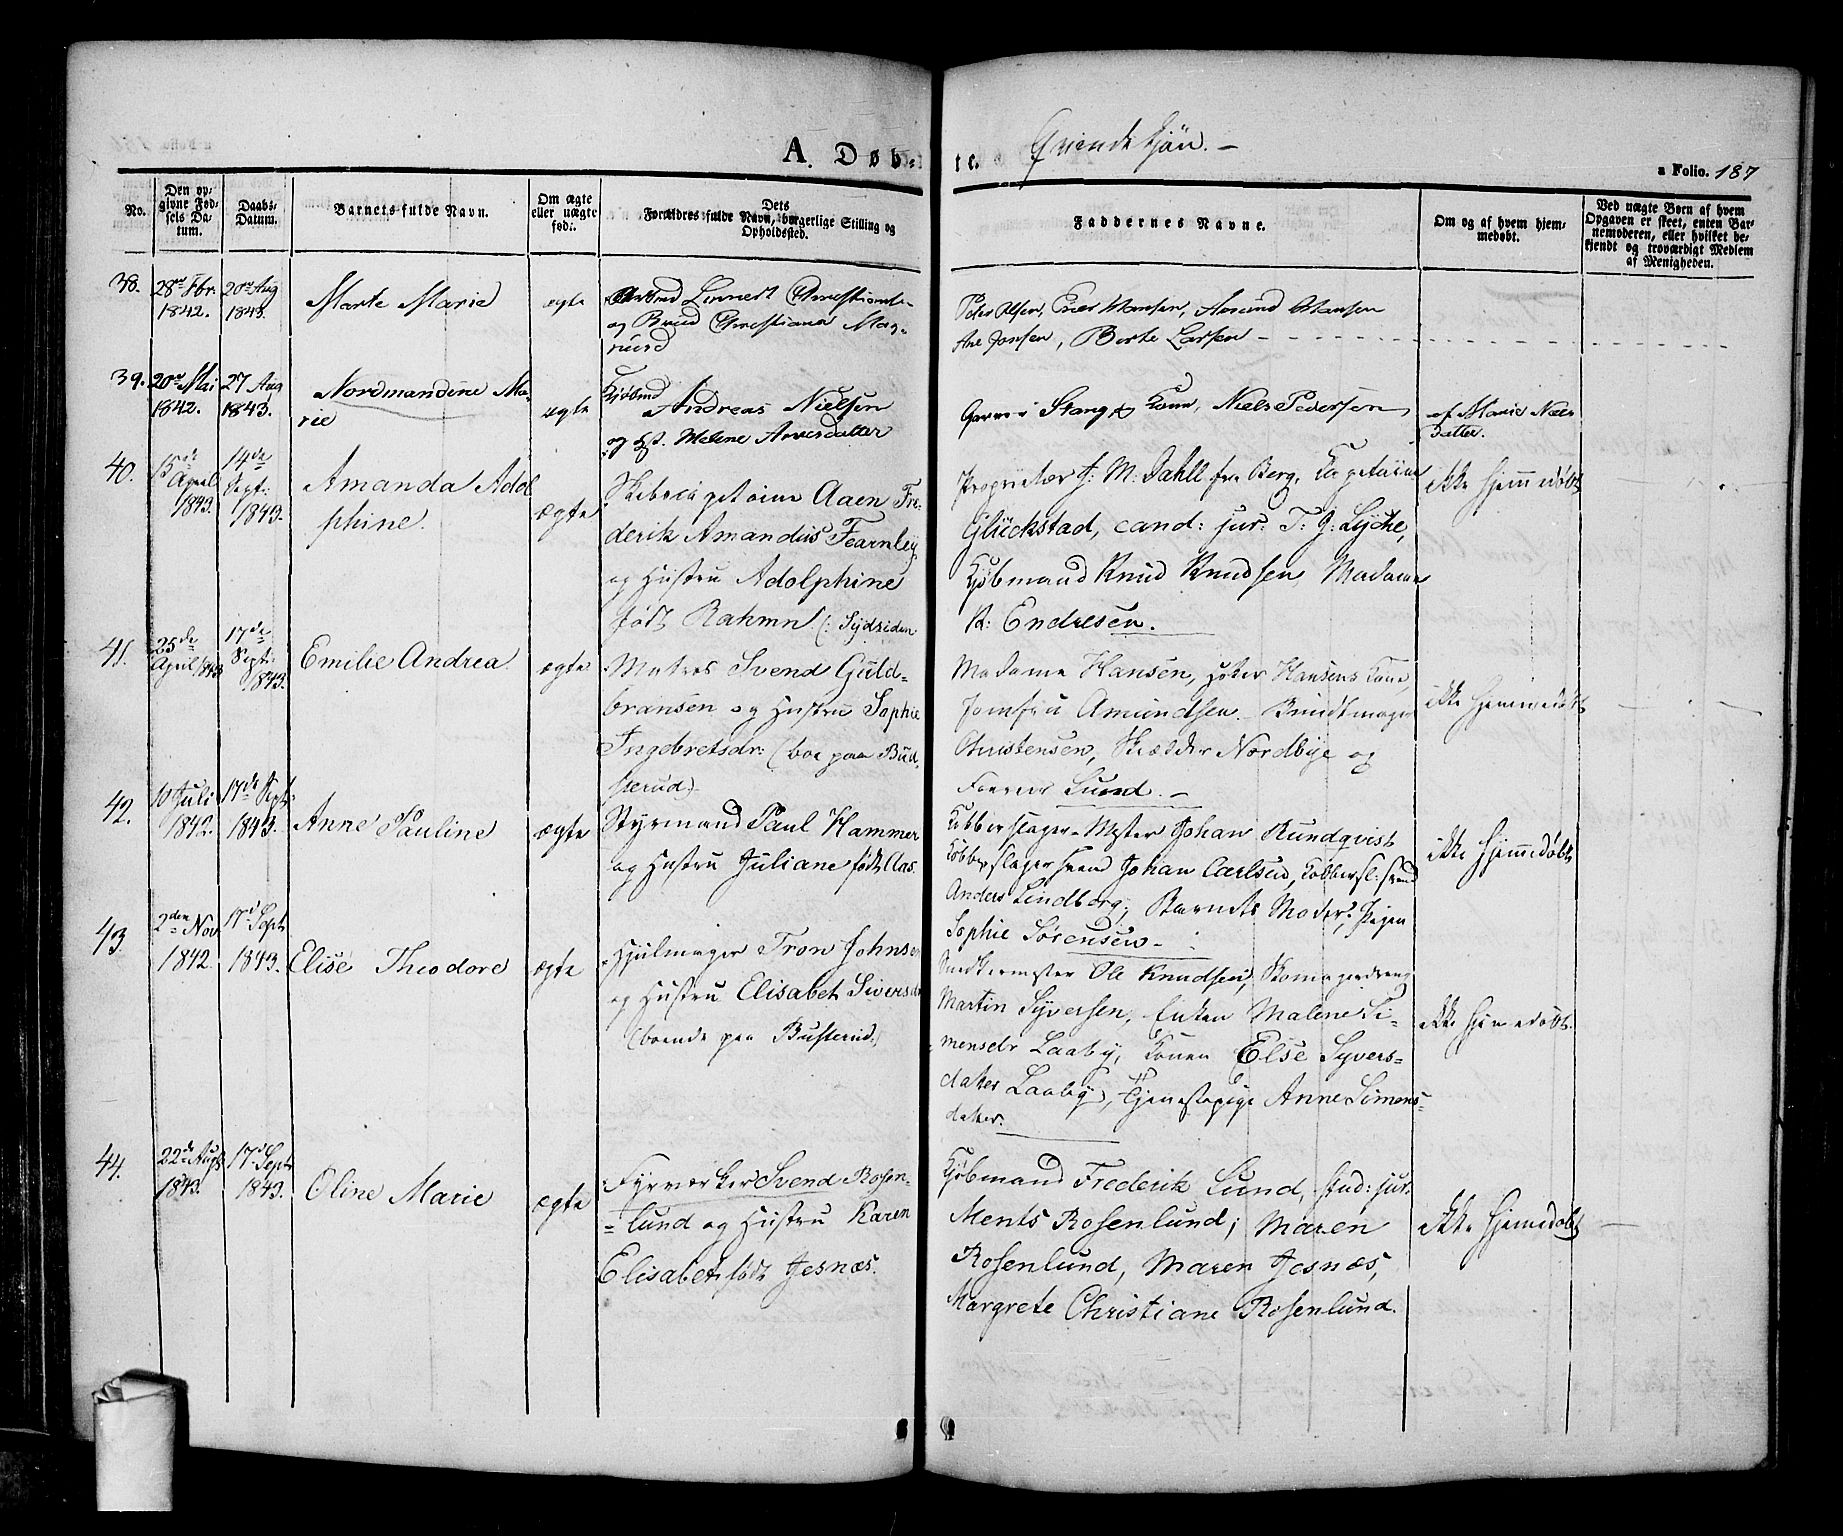 A. Døb-
te. Qvindekjön. —
a Folio. 187
No.
Den op-
givne Fød-
sels Da-
tum.
Daabs-
Datum.
Barnets fulde Navn.
Om ægte
eller uægte
født.
Dets
Forældres fulde Navn, borgerlige Stilling og
Opholdssted.
Faddernes Navne.
Om og af hvem hjem-
medøbt.
Ved uægte Børn af hvem
Opgaven er skeet, enten Bar-
nemoderen, eller hvilket be-
kjendt og troværdigt Medlem
af Menigheden.
38.
28de Fbr.
1842.
20de Aug
1843.
Marte Marie
ægte
Christians-
og Christiane Mag-
Peter Olsen, Hansen, Amund Hansen
Ane Jonsen, Berte Larsen
39.
20de Mai
1842.
27 Aug
1843.
Nordmandine Ma-
rie
ægte
Andreas Nielsen
og Hst. Malene Arvesdatter
Garver Stang & Kone, Niels Pedersen,
af Marie Niels
datter.
40.
15de
April
1843.
14de
Septr:
1843.
Amanda Adol
phine.
ægte
Skibscapetaine Aaen Fre-
derik Amandus Fearnley
og Hustru Adolphine
født Rahmn (: Sydsiden
Proprietær J: M. Dahll fra Berg, Capetaine
Glückstad, cand: jur: T: G. Lyche,
Kjøbmand Knud Knudsen, Madame
K: Endresen.
ikke hjemmedøbt
41.
25de
April 1843
17de
Septr:
1843.
Emilie Andrea.
ægte
Matros Svend Guld-
bransen og Hustru Sophie
Ingebretsdr: (boe paa Bud-
sterud)
Madame Hansen, Høker Hansens Kone,
Jomfru Amundsen. Bundtmager
Christensen, Skrædder Nordbye og
Farver Lund. —
ikke hjemmedøbt
42.
10 Juli
1842.
17de Sept:
1843.
Anne Pauline
ægte
Styrmand Paul Hammer
og Hustru Juliane født Aas.
Kobberslager-Mester Johan Rundqvist
Kobberslagersvend Johan Carlsen, Kobbersl: svend
Anders Lindberg, Barnets Moder, Pigen
Sophie Sørensen. —
ikke hjemmedøbt
43.
2den Nov.
1842.
17d Sept
1843.
Elise Theodore
ægte
Hjulmager Tron Johnsen
og Hustru Elisabet Siversdr
(boende paa Busterud.)
Snedkermester Ole Knudsen, Skomagerdreng
Martin Syversen, Enken Malene Si-
mensdr Laaby, Konen Else Syvers-
datter Laaby, Tjenestepige Anne Simens-
datter.
ikke hjemmedøbt.
44.
22de Augt
1843.
17d Sept
1843.
Oline Marie
ægte
Fyrværker Svend Rosen-
lund og Hustru Karen
Elisabet født Jesnæs.
Kjøbmand Frederik Lund, stud: jur:
Ments Rosenlund; Maren
Rosenlund, Maren Jesnæs,
Margrete Christiane Rosenlund.
ikke hjemmedøbt